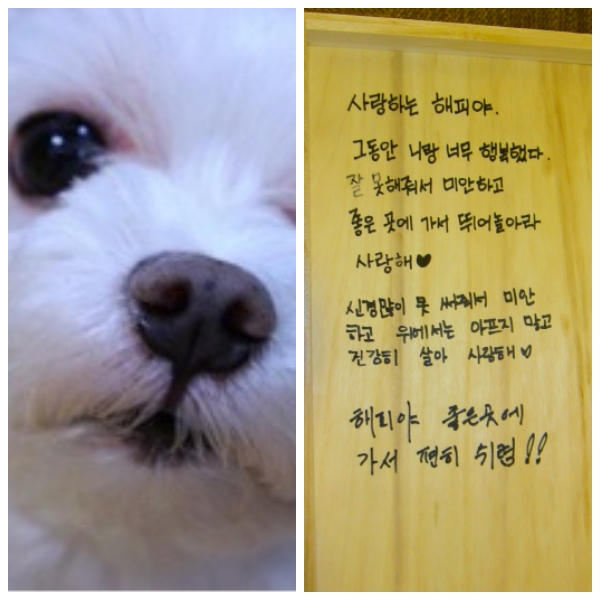 사랑하는 해피야.
그동안 니랑 너무 행복했다.
잘 못해줘서 미안하고
좋은 곳에 가서 뛰어놀아라
사랑해♥
신경많이 못 써줘서 미안
하고 위에서는 아프지 말고
건강히 살아 사랑해♡
해피야 좋은곳에
가서 편히 쉬렴!!